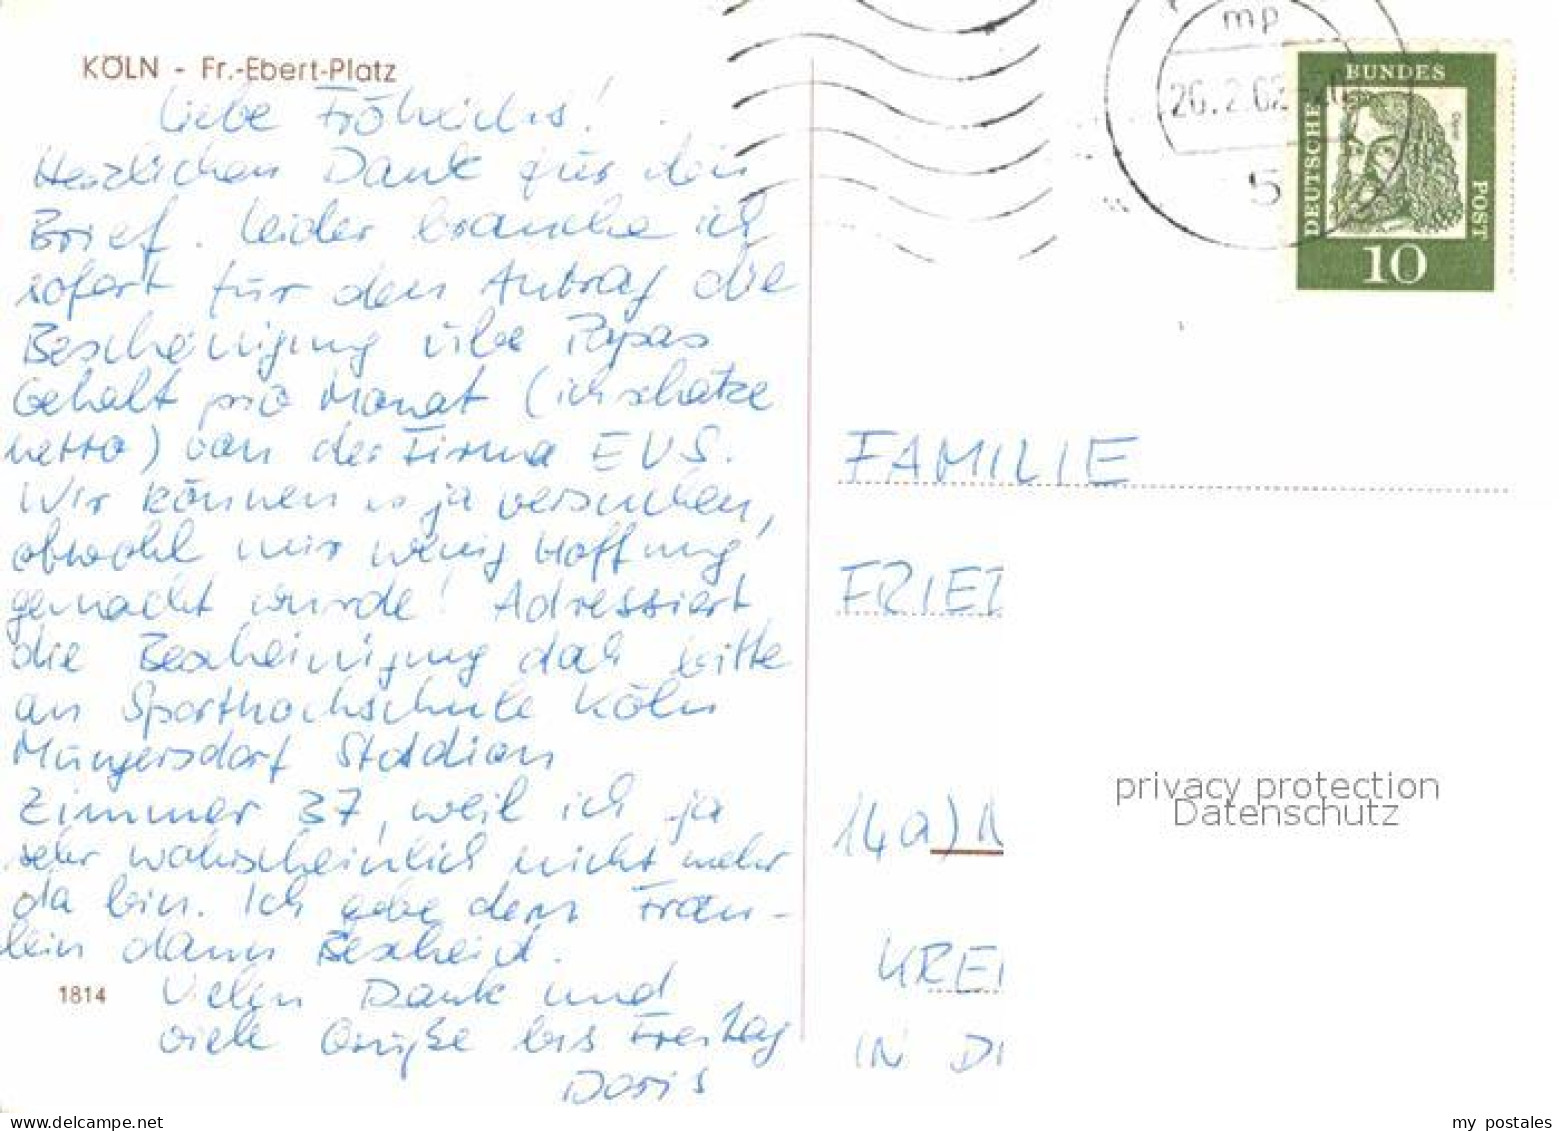 KÖLN - Fr.-Ebert-Platz
Liebe Fröhlichs!
Herzlichen Dank für den
Brief. Leider brauche ich
sofort für den Antrag die
Bescheinigung über Papas
Gehalt pro Monat (ich schätze
netto) von der Firma EVS.
Wir können ja versuchen,
obwohl mir wenig Hoffnung
gemacht wurde! Adressiert
die Bescheinigung dah bitte
an Sporthochschule Köln
Müngersdorf Stadion
Zimmer 37, weil ich ja
sehr wahrscheinlich nicht mehr
da bin. Ich gebe dem Fräu-
lein dann Bescheid.
Vielen Dank und
viele Grüße bis Freitag
Doris
1814
mp
26.2.62-20
5
DEUTSCHE
BUNDES
POST
Dürer
10
FAMILIE
FRIED
14a) N
KREI
IN DI
privacy protection
Datenschutz
my postales